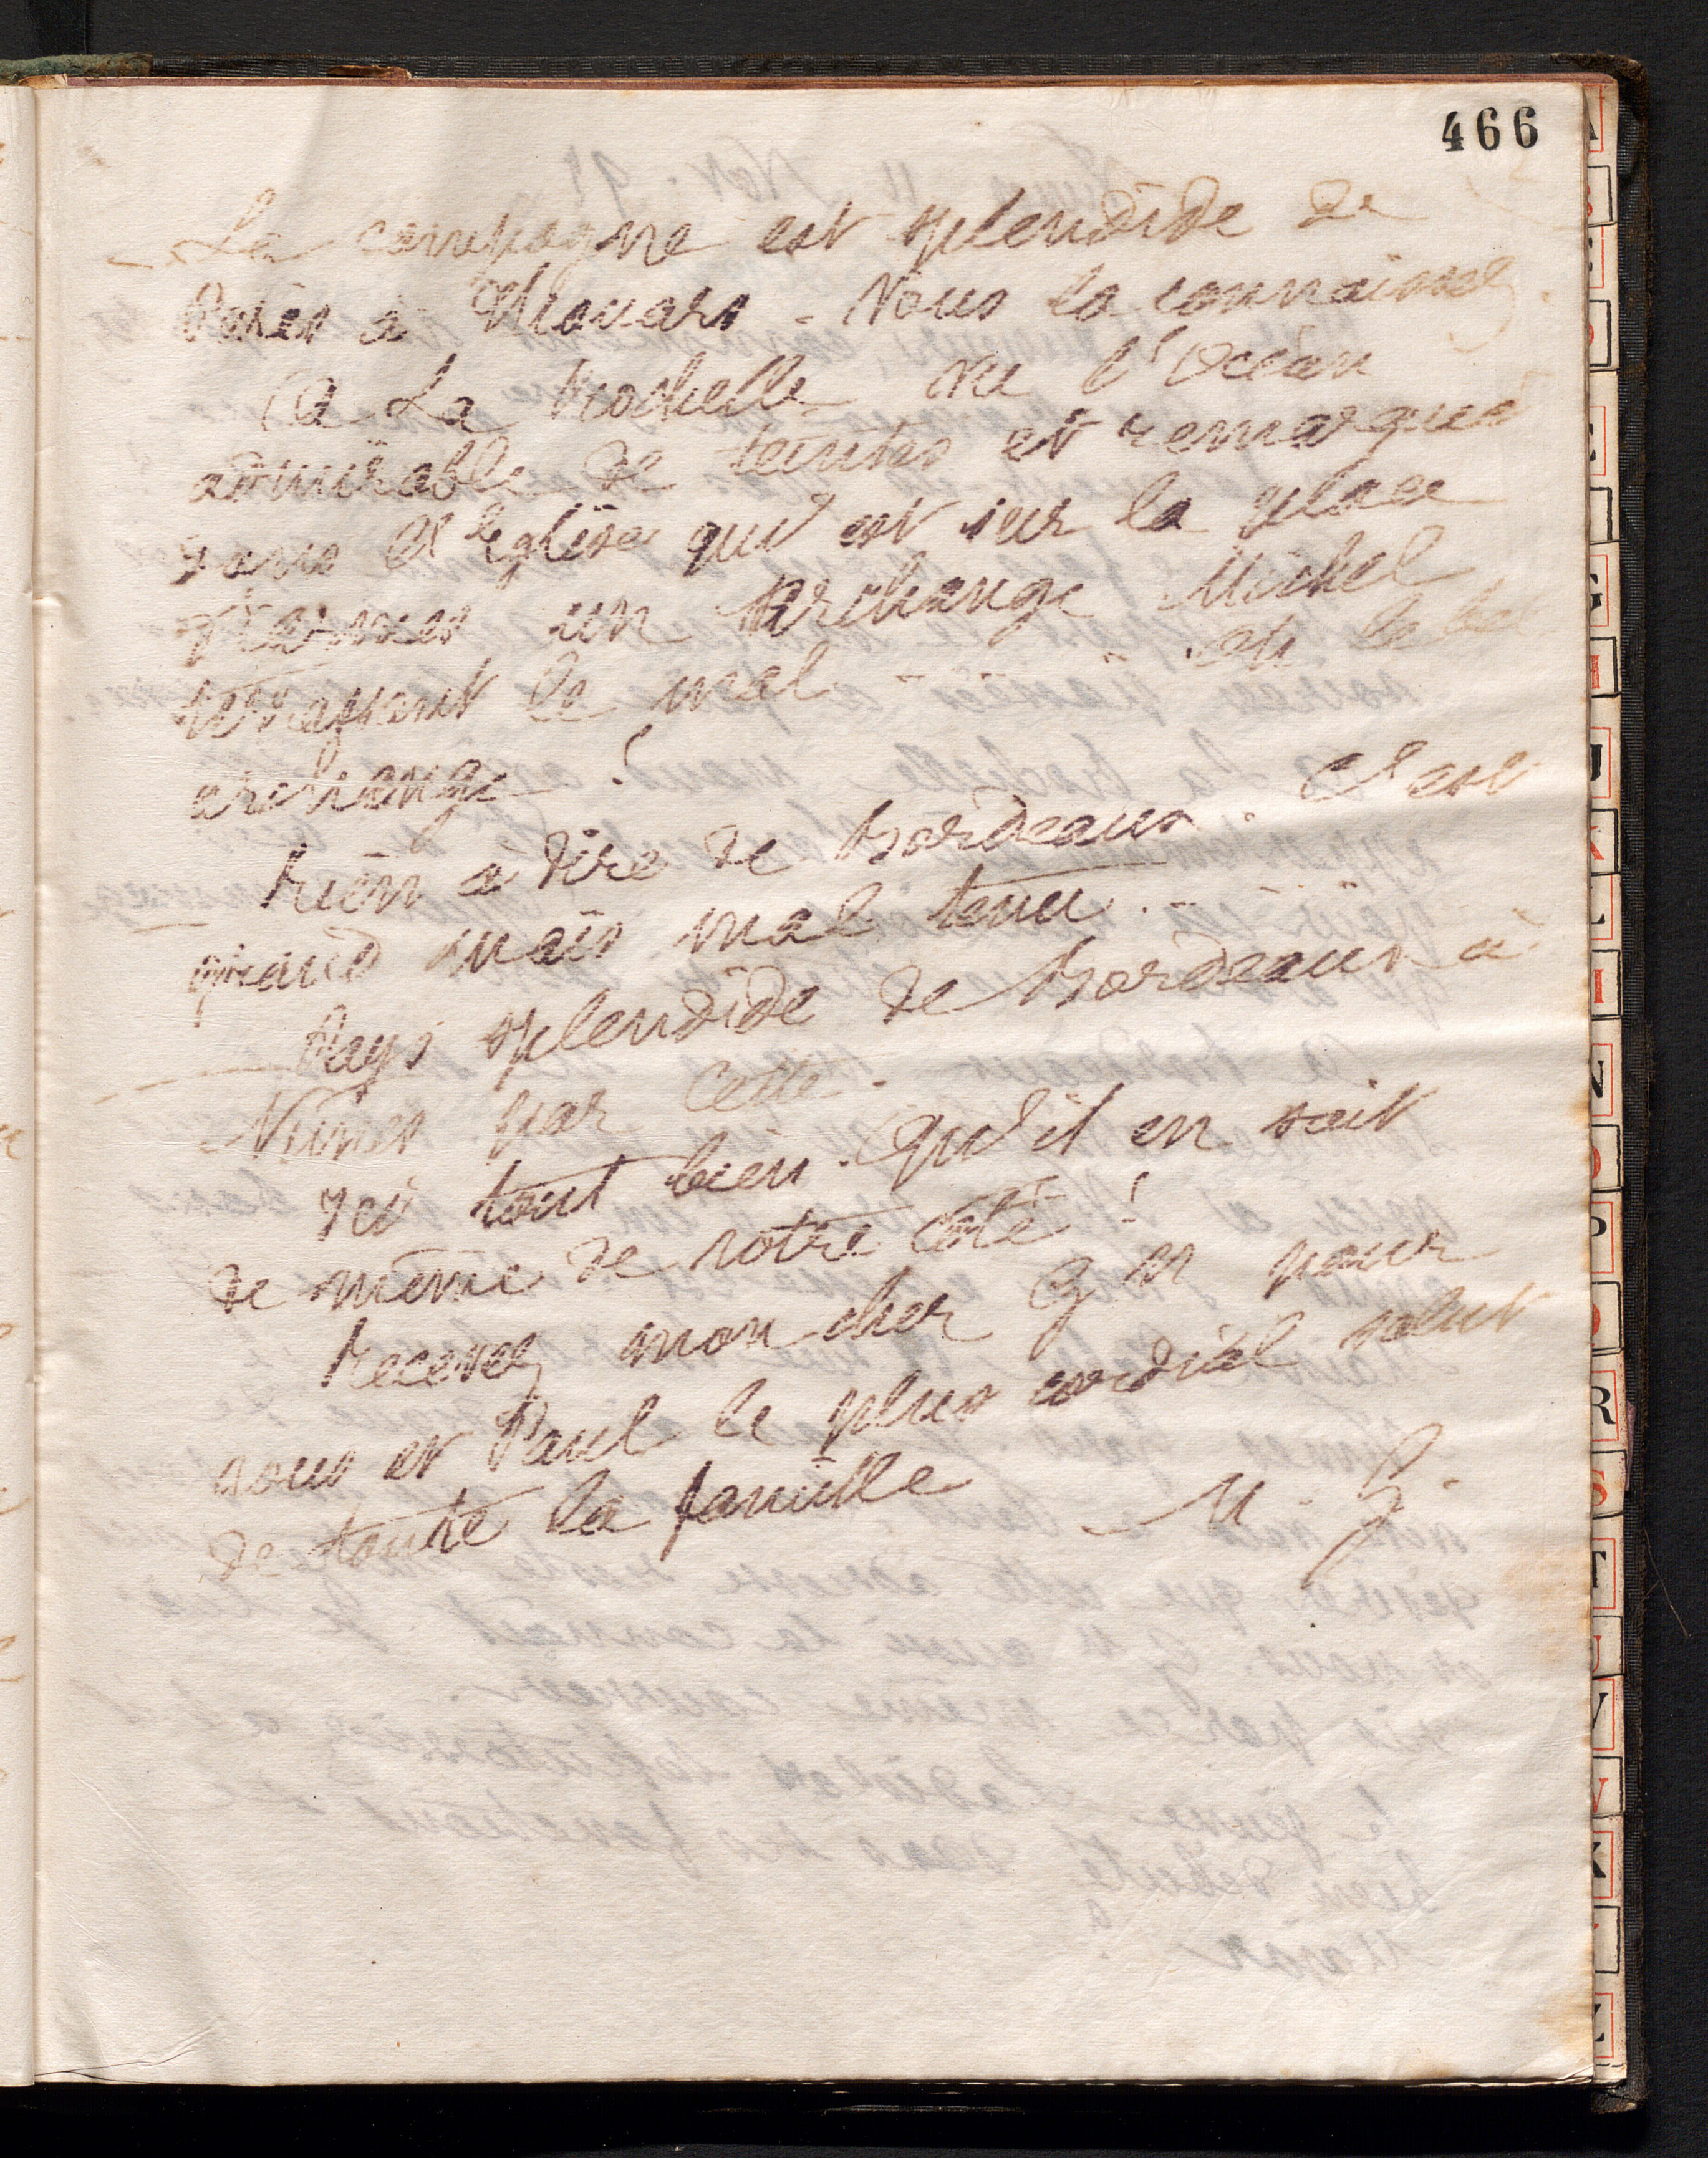 466
La campagne est splendide de
Paris à Thouars. Vous la connaissez.
A La Rochelle vu l'Océan
admirable de teintes et remarqué
dans l'Eglise qui est sur la place
d'armes un Archange Michel
terrassant le mal - - - oh le bel
archange !
Rien à dire de Bordeaux. C'est
grand mais mal tenu.
Pays splendide de Bordeaux à
Nîmes par Cette.
Ici tout bien. Qu'il en soit
de même de votre côté !
Recevez mon cher Gn pour
vous et Paul le plus cordial salut
de toute la famille
M. G.